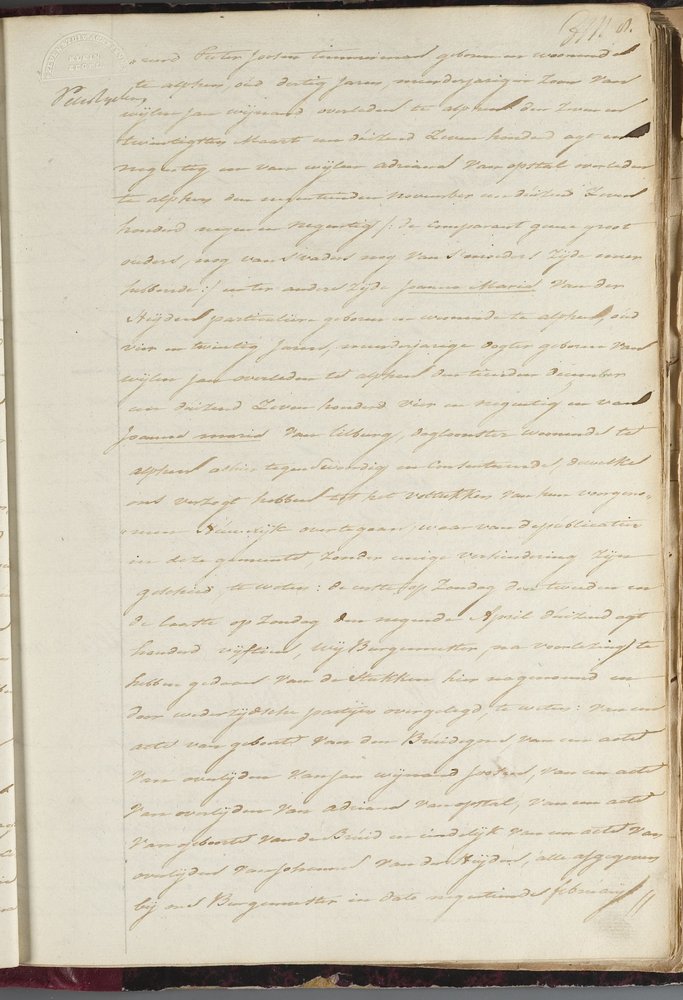 eerd Peter Joosen timmerman geboren en woonende
te alphen, oud dertig jaren, meerderjarige Zoon van
wijlen jan wijnand overleden te alphen den Zeven en
twintigsten Maart een duizend Zeven honderd agt en
negentig en van wijlen adriana Van opstal overleden
te alphen den negentienden November een duizend Zeven
honderd negen en negentig /: de Comparant geene groot
ouders, nog van s'vaders nog van s'moeders Zijde meer
hebbende :/ en ter andere Zijde Joanna Maria Van der
Heijden particuliere geboren en woonende te alphen, oud
vier en twintig Jaren, meerderjarige dogter geboren Van
wijlen jan overleden te alphen den tienden december
een duizend Zeven honderd vier en negentig en van
Joanna maria Van tilburg, dagloonster woonende te
alphen alhier tegenwoordig en Consenteerende, dewelke
ons verzogt hebben tot het voltrekken van hun voorgeno-
men Huwelijk overtegaan, waar van de publicatien
in deze gemeente, Zonder eenige verhindering Zijn
geschied te weten: de eerste op Zondag den tweeden en
de laatste op Zondag den negende April duizend agt
honderd vijftien, Wij Burgemeester, na voorlezing te
hebben gedaan Van de Stukken hier nagenoemd en
door wederzijdsche partijen overgelegd, te weten: van een
acte van geboorte Van den Bruidegom, van een acte
Van overlijden Van jan wijnand Joosen, van een acte
Van overlijden Van adriana van opstal, van een acte
Van geboorte Van de Bruid en eindelijk van een acte van
overlijden van Johannes Van der Heijden, alle afgegeven
bij ons Burgemeester in dato negentiende februarij